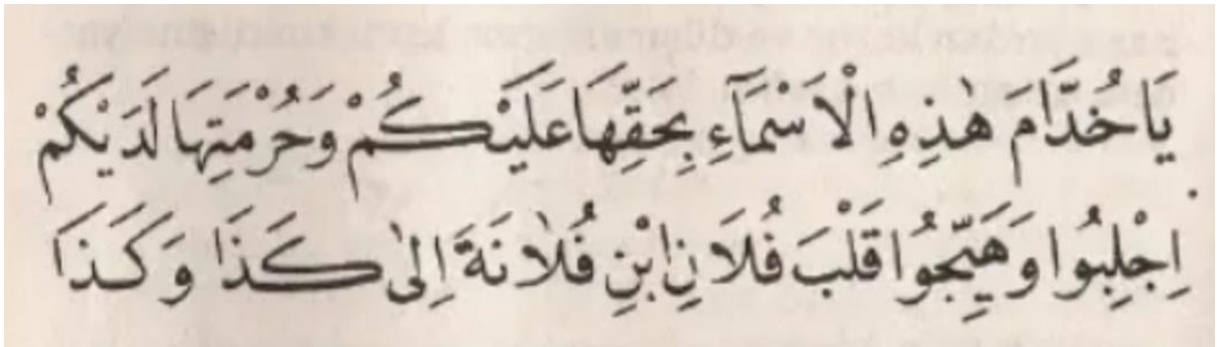 يَاخُدَّامَ هٰذِهِ الْاَسْمَآءِ بِحَقِّهَا عَلَيْكُمْ وَحُرْمَتِهَا لَدَيْكُمْ
اِجْلِبُوا وَهَيِّجُوا قَلْبَ فُلَانِ ابْنِ فُلَانَةَ اِلٰى كَذَا وَكَذَا